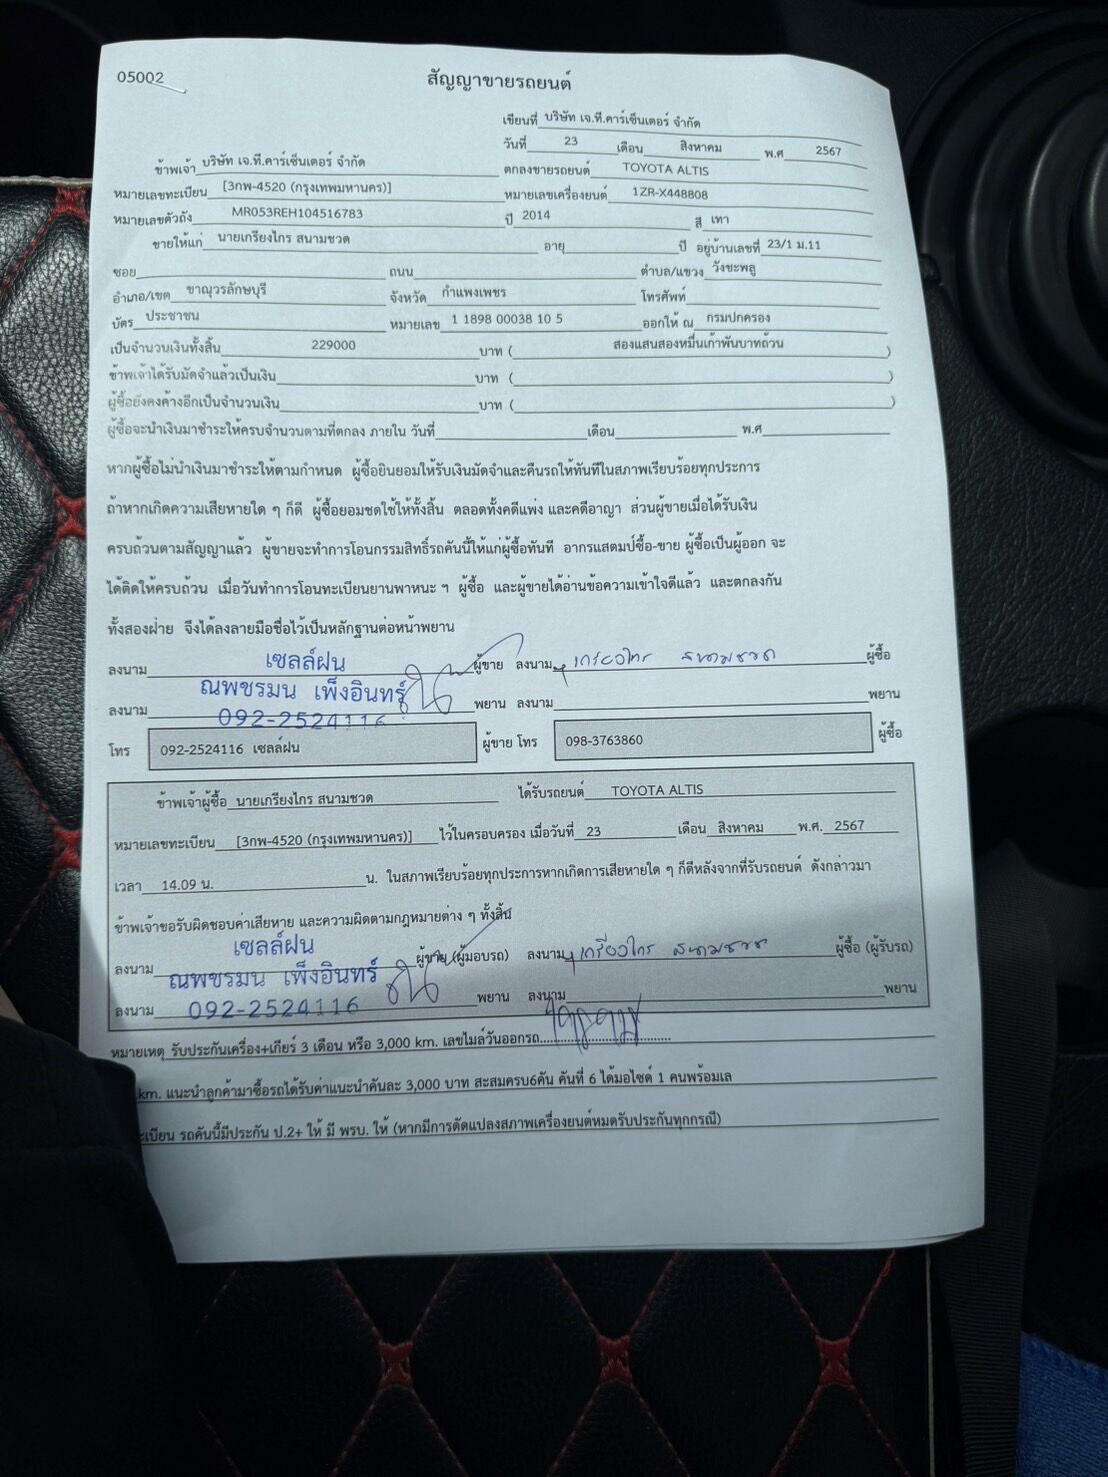 05002
สัญญาขายรถยนต์
เขียนที่ บริษัท เจ.ที.คาร์เซ็นเตอร์ จำกัด
วันที่ 23 เดือน สิงหาคม พ.ศ 2567
ข้าพเจ้า บริษัท เจ.ที.คาร์เซ็นเตอร์ จำกัด ตกลงขายรถยนต์ TOYOTA ALTIS
หมายเลขทะเบียน [3กพ-4520 (กรุงเทพมหานคร)] หมายเลขเครื่องยนต์ 1ZR-X448808
หมายเลขตัวถัง MR053REH104516783 ปี 2014 สี เทา
ขายให้แก่ นายเกรียงไกร สนามชวด อายุ ปี อยู่บ้านเลขที่ 23/1 ม.11
ซอย ถนน ตำบล/แขวง วังชะพลู
อำเภอ/เขต ขาณุวรลักษบุรี จังหวัด กำแพงเพชร โทรศัพท์
บัตร ประชาชน หมายเลข 1 1898 00038 10 5 ออกให้ ณ กรมปกครอง
เป็นจำนวนเงินทั้งสิ้น 229000 บาท ( สองแสนสองหมื่นเก้าพันบาทถ้วน )
ข้าพเจ้าได้รับมัดจำแล้วเป็นเงิน บาท ( )
ผู้ซื้อยังคงค้างอีกเป็นจำนวนเงิน บาท ( )
ผู้ซื้อจะนำเงินมาชำระให้ครบจำนวนตามที่ตกลง ภายใน วันที่ เดือน พ.ศ
หากผู้ซื้อไม่นำเงินมาชำระให้ตามกำหนด ผู้ซื้อยินยอมให้รับเงินมัดจำและคืนรถให้ทันทีในสภาพเรียบร้อยทุกประการ
ถ้าหากเกิดความเสียหายใด ๆ ก็ดี ผู้ซื้อยอมชดใช้ให้ทั้งสิ้น ตลอดทั้งคดีแพ่ง และคดีอาญา ส่วนผู้ขายเมื่อได้รับเงิน
ครบถ้วนตามสัญญาแล้ว ผู้ขายจะทำการโอนกรรมสิทธิ์รถคันนี้ให้แก่ผู้ซื้อทันที อากรแสตมป์ซื้อ-ขาย ผู้ซื้อเป็นผู้ออก จะ
ได้ติดให้ครบถ้วน เมื่อวันทำการโอนทะเบียนยานพาหนะ ฯ ผู้ซื้อ และผู้ขายได้อ่านข้อความเข้าใจดีแล้ว และตกลงกัน
ทั้งสองฝ่าย จึงได้ลงลายมือชื่อไว้เป็นหลักฐานต่อหน้าพยาน
ลงนาม เซลล์ฝน ผู้ขาย ลงนาม เกรียงไกร สนามชวด ผู้ซื้อ
ณพชรมน เพ็งอินทร์
ลงนาม 092-2524116 พยาน ลงนาม พยาน
โทร 092-2524116 เซลล์ฝน ผู้ขาย โทร 098-3763860 ผู้ซื้อ
ข้าพเจ้าผู้ซื้อ นายเกรียงไกร สนามชวด ได้รับรถยนต์ TOYOTA ALTIS
หมายเลขทะเบียน [3กพ-4520 (กรุงเทพมหานคร)] ไว้ในครอบครอง เมื่อวันที่ 23 เดือน สิงหาคม พ.ศ. 2567
เวลา 14.09 น. น. ในสภาพเรียบร้อยทุกประการหากเกิดการเสียหายใด ๆ ก็ดีหลังจากที่รับรถยนต์ ดังกล่าวมา
ข้าพเจ้าขอรับผิดชอบค่าเสียหาย และความผิดตามกฎหมายต่าง ๆ ทั้งสิ้น
ลงนาม เซลล์ฝน ผู้ขาย (ผู้มอบรถ) ลงนาม เกรียงไกร สนามชวด ผู้ซื้อ (ผู้รับรถ)
ณพชรมน เพ็งอินทร์
ลงนาม 092-2524116 พยาน ลงนาม พยาน
หมายเหตุ รับประกันเครื่อง+เกียร์ 3 เดือน หรือ 3,000 km. เลขไมล์วันออกรถ
km. แนะนำลูกค้ามาซื้อรถได้รับค่าแนะนำคันละ 3,000 บาท สะสมครบ6คัน คันที่ 6 ได้มอไซด์ 1 คนพร้อมเล
ะเบียน รถคันนี้มีประกัน ป.2+ ให้ มี พรบ. ให้ (หากมีการดัดแปลงสภาพเครื่องยนต์หมดรับประกันทุกกรณี)